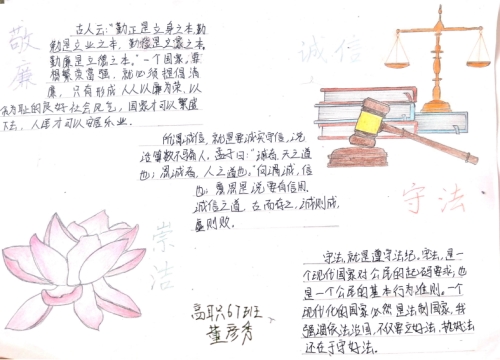 敬廉
古人云："勤正是立身之本,勤
勉是立业之本,勤俭是立家之本,
勤廉是立德之本。"一个国家,要
想繁荣富强,就必须提倡清
廉,只有形成人人以廉为荣,以
为耻的良好社会风气,国家才可以繁盛
下去,人民才可以安居乐业。
诚信
所谓诚信,就是要诚实守信,说
话算数不骗人,孟子曰:"诚者,天之道
也;思诚者,人之道也。"何谓诚,信
也,意思是说要有信用,
诚信之道,在而存之,诚则成,
虚则败。
崇洁
守法
守法,就是遵守法纪。守法,是一
个现代国家对公民的起码要求,也
是一个公民的基本行为准则。一个
现代化的国家必然是法制国家,我
强调依法治国,不仅要立好法,执好法
还在于守好法。
高职六67班
董彦秀